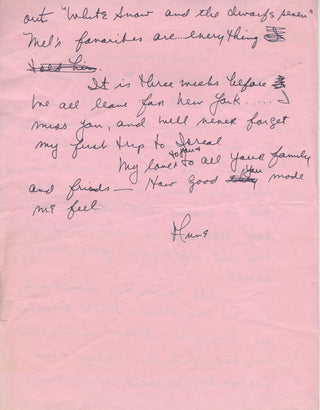 out "White Snow and the dwarfs seven"
Mel's favorites are..everything I
told him.
It is three weeks before
we all leave for New York..... I
miss you, and will never forget
my first trip to Isreal
My love to you & to all your family
and friends — How good you made
me feel